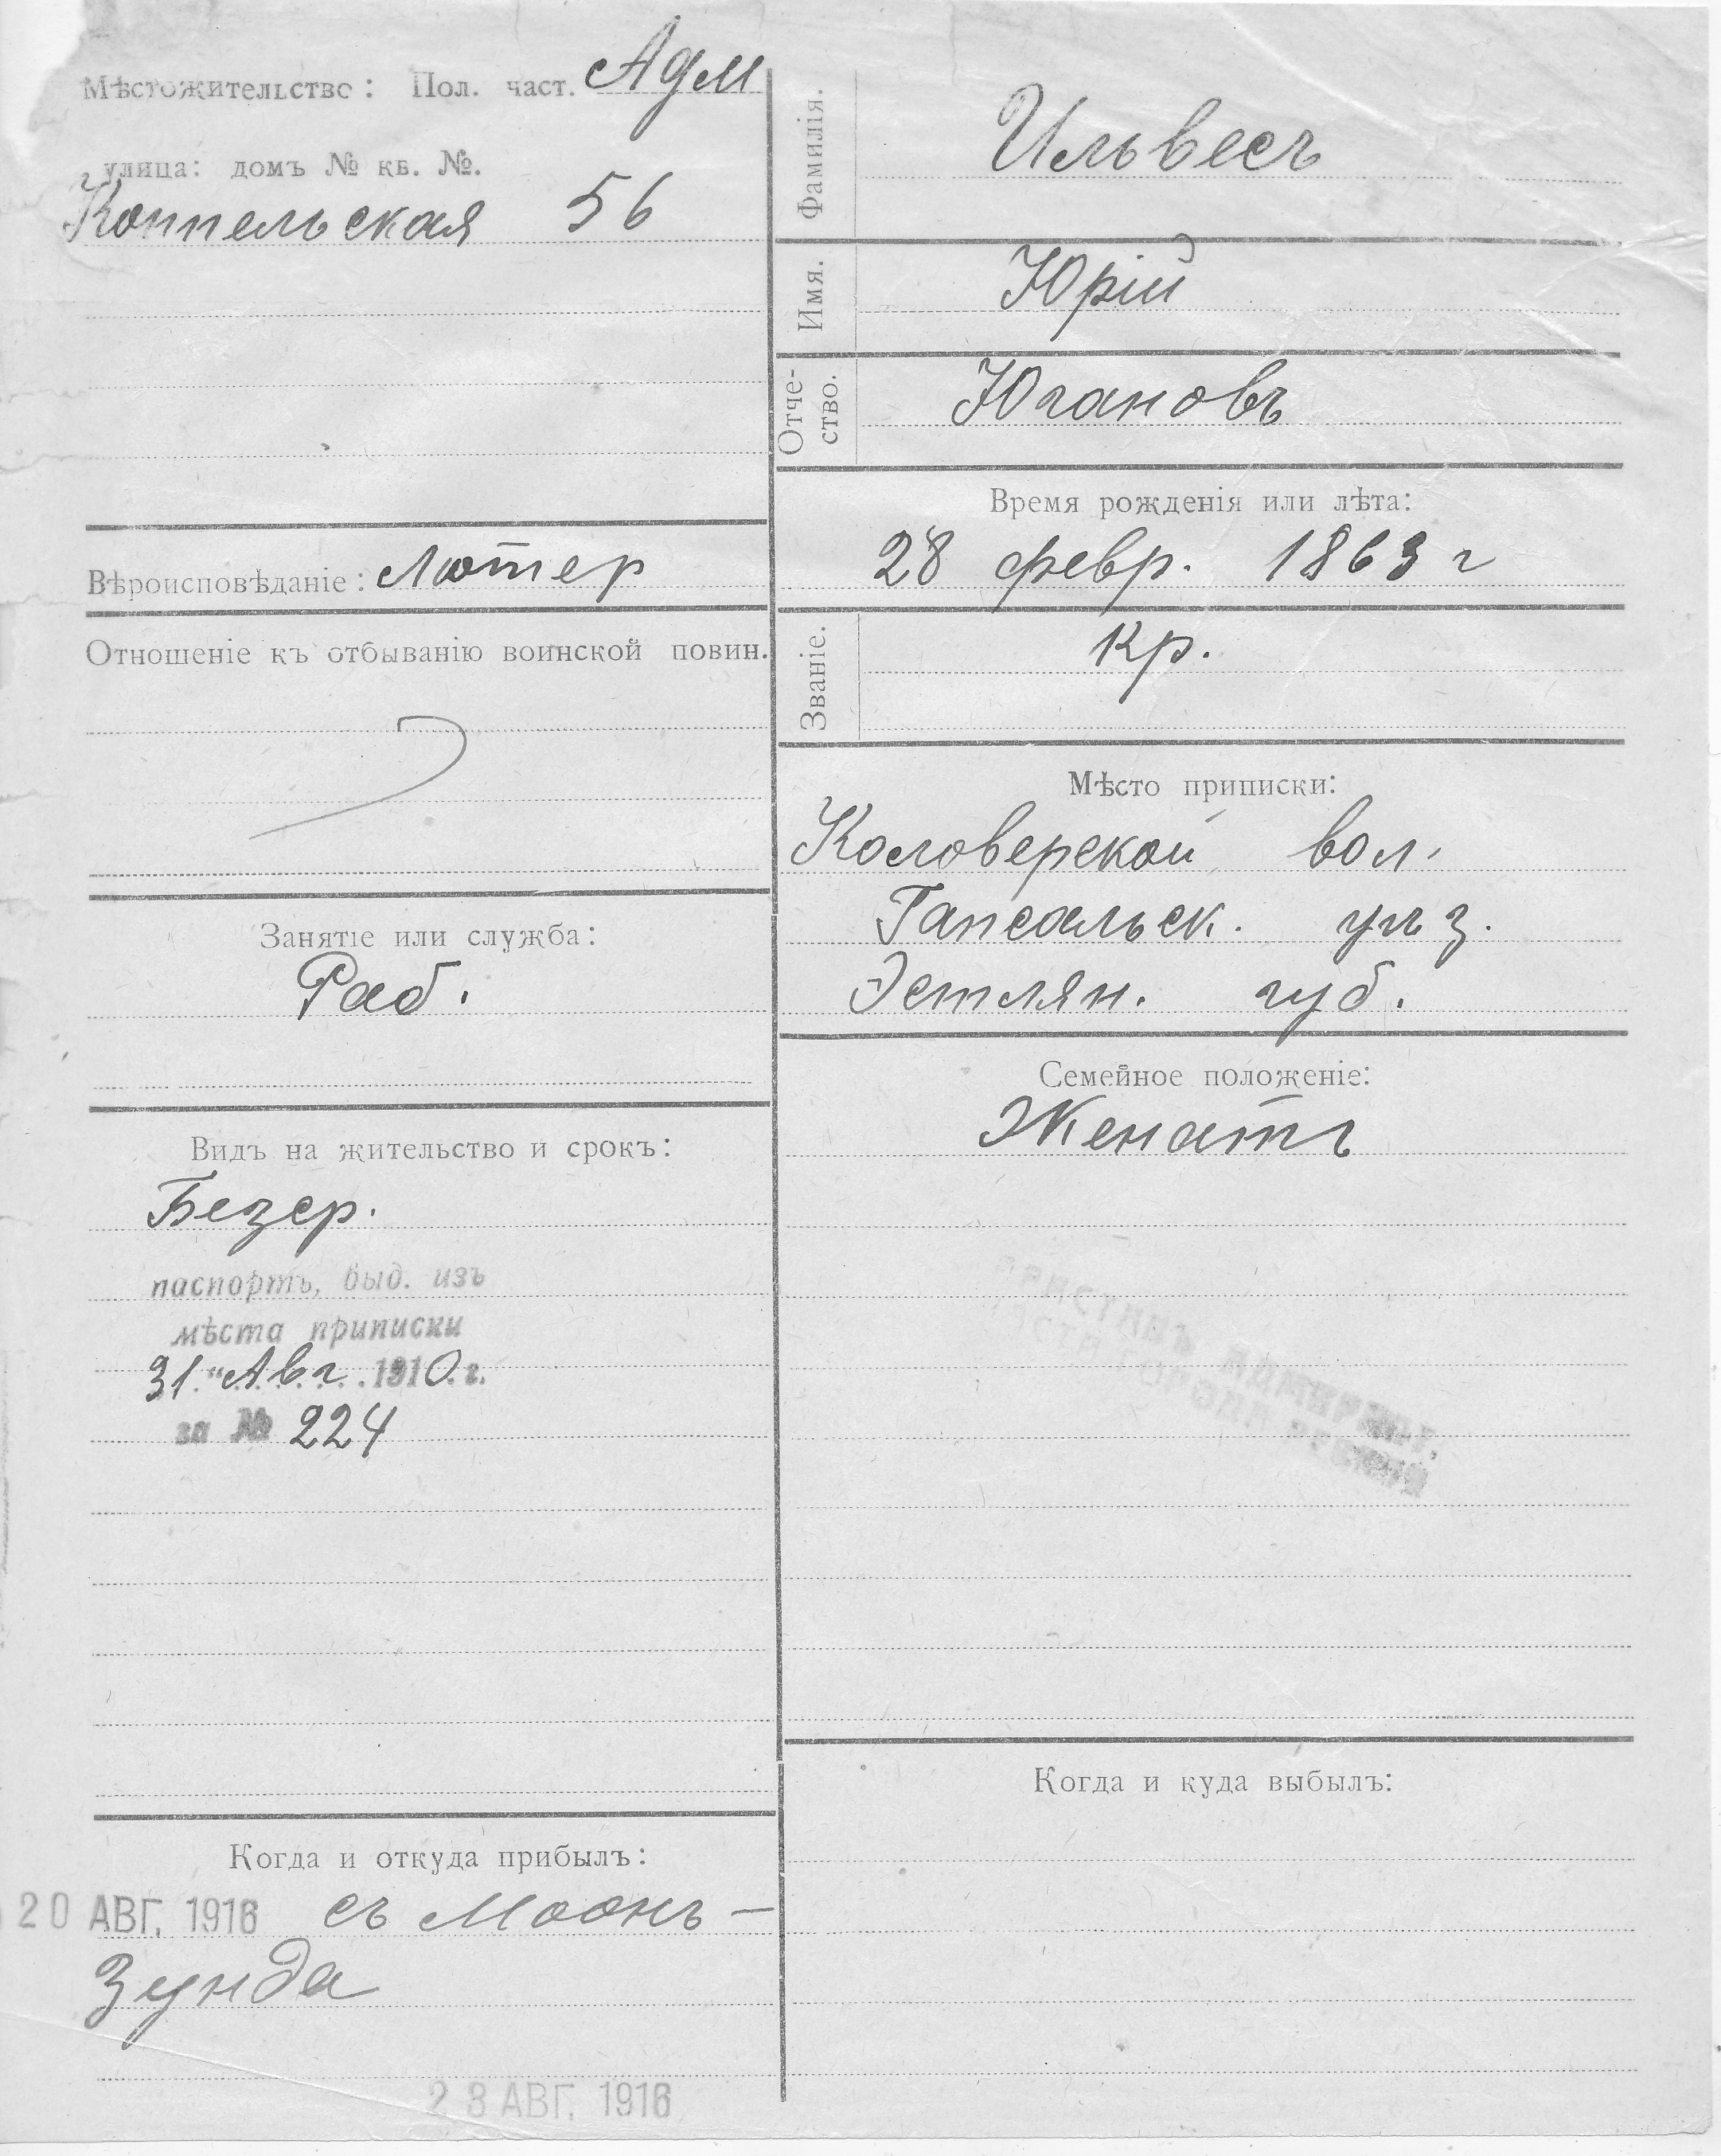 Мѣстожительство: Пол. част. Адм
улица: домъ № кв. №.
Коппельская 56
Вѣроисповѣданіе: Лютер
Отношеніе къ отбыванію воинской повин.
Занятіе или служба:
Раб.
Видъ на жительство и срокъ:
Безср.
паспортъ, выд. изъ
мѣста приписки
31 " Авг. 1910 г.
за № 224
Когда и откуда прибылъ:
20 АВГ. 1916 съ Моонъ-
Зунда
28 АВГ. 1916
Фамилія. Ильвесъ
Имя. Юрій
Отче-
ство. Югановъ
Время рожденія или лѣта:
28 февр. 1863 г
Званіе. кр.
Мѣсто приписки:
Коловерской вол.
Гапсальск. уѣз.
Эстлян. губ.
Семейное положеніе:
Женатъ
Когда и куда выбылъ: